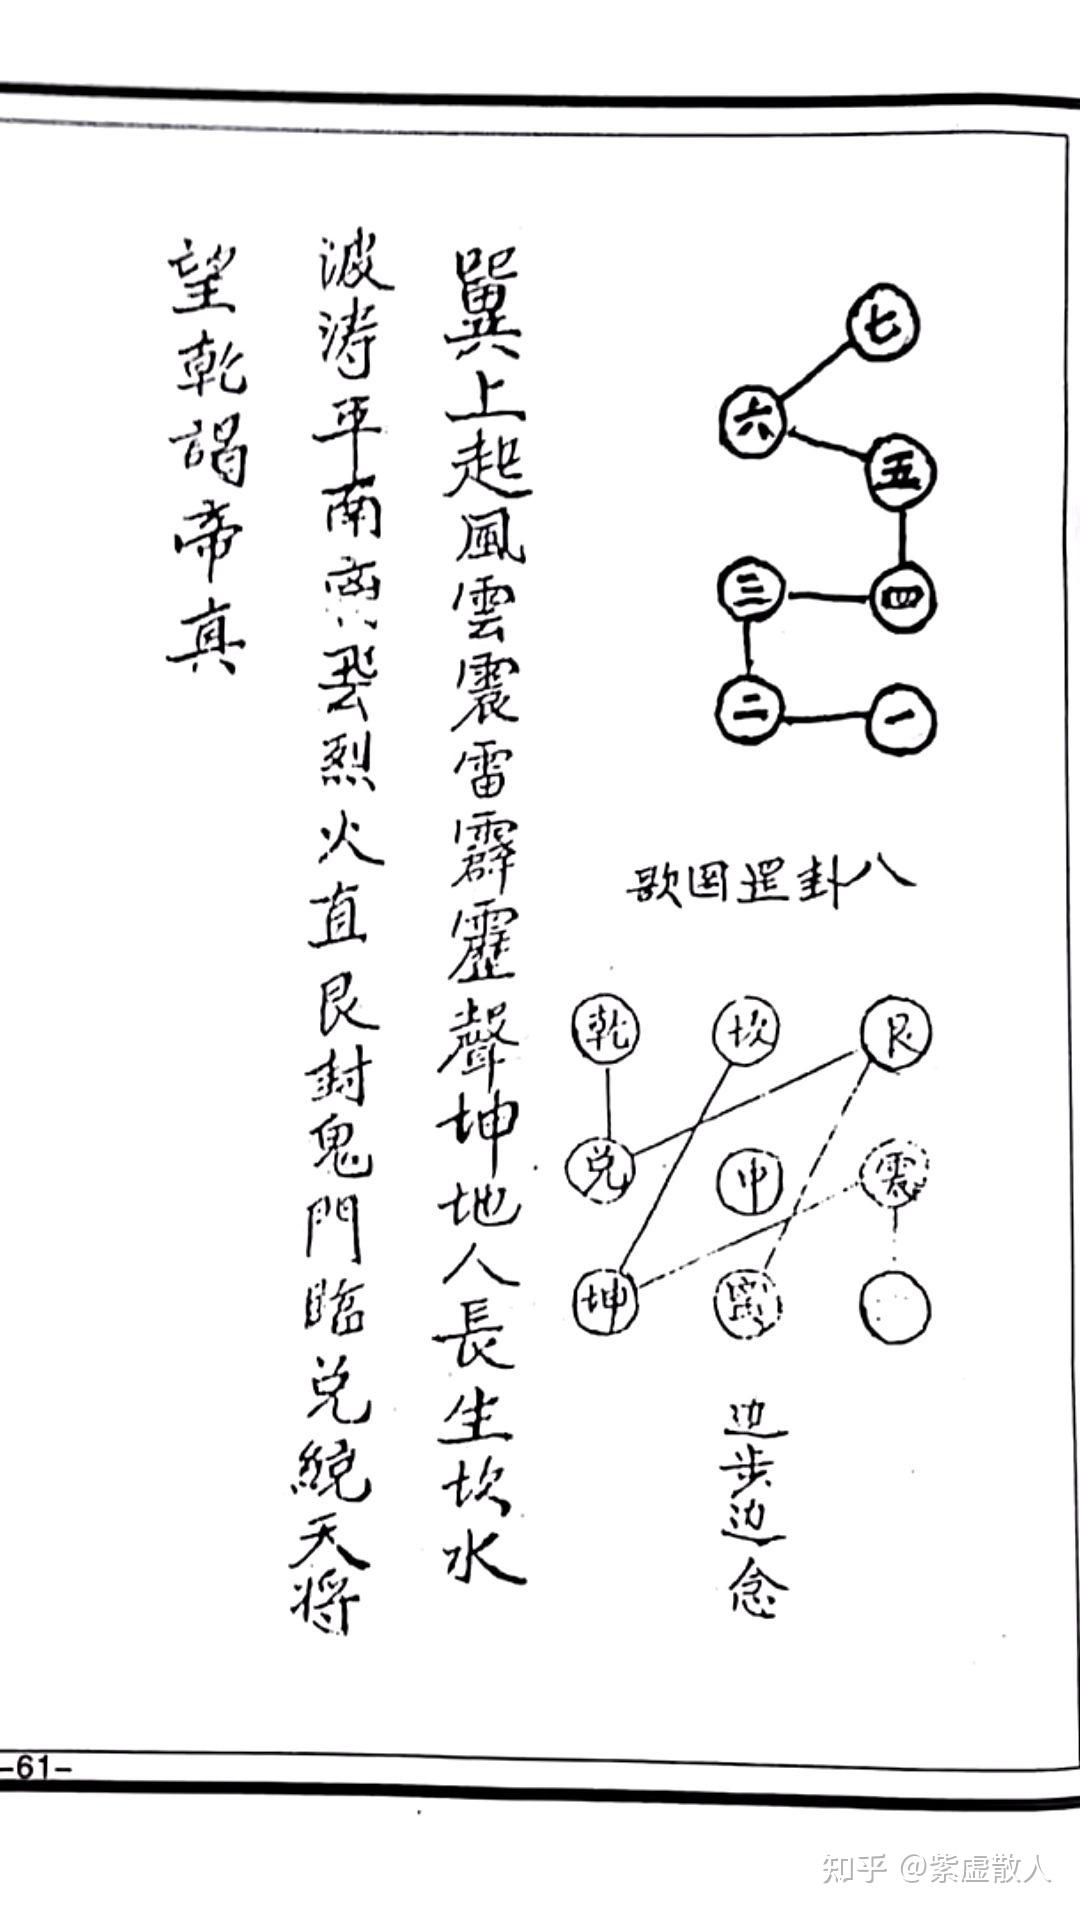 七
六
五
三
四
二
一
八卦罡図歌
乾 坎 艮
兑 中 震
坤
边步边念
巽上起風雲震雷霹靂聲坤地人長生坎水
波涛平南离飛烈火直艮封鬼門臨兑統天将
望乾謁帝真
-61-
知乎 @紫虚散人